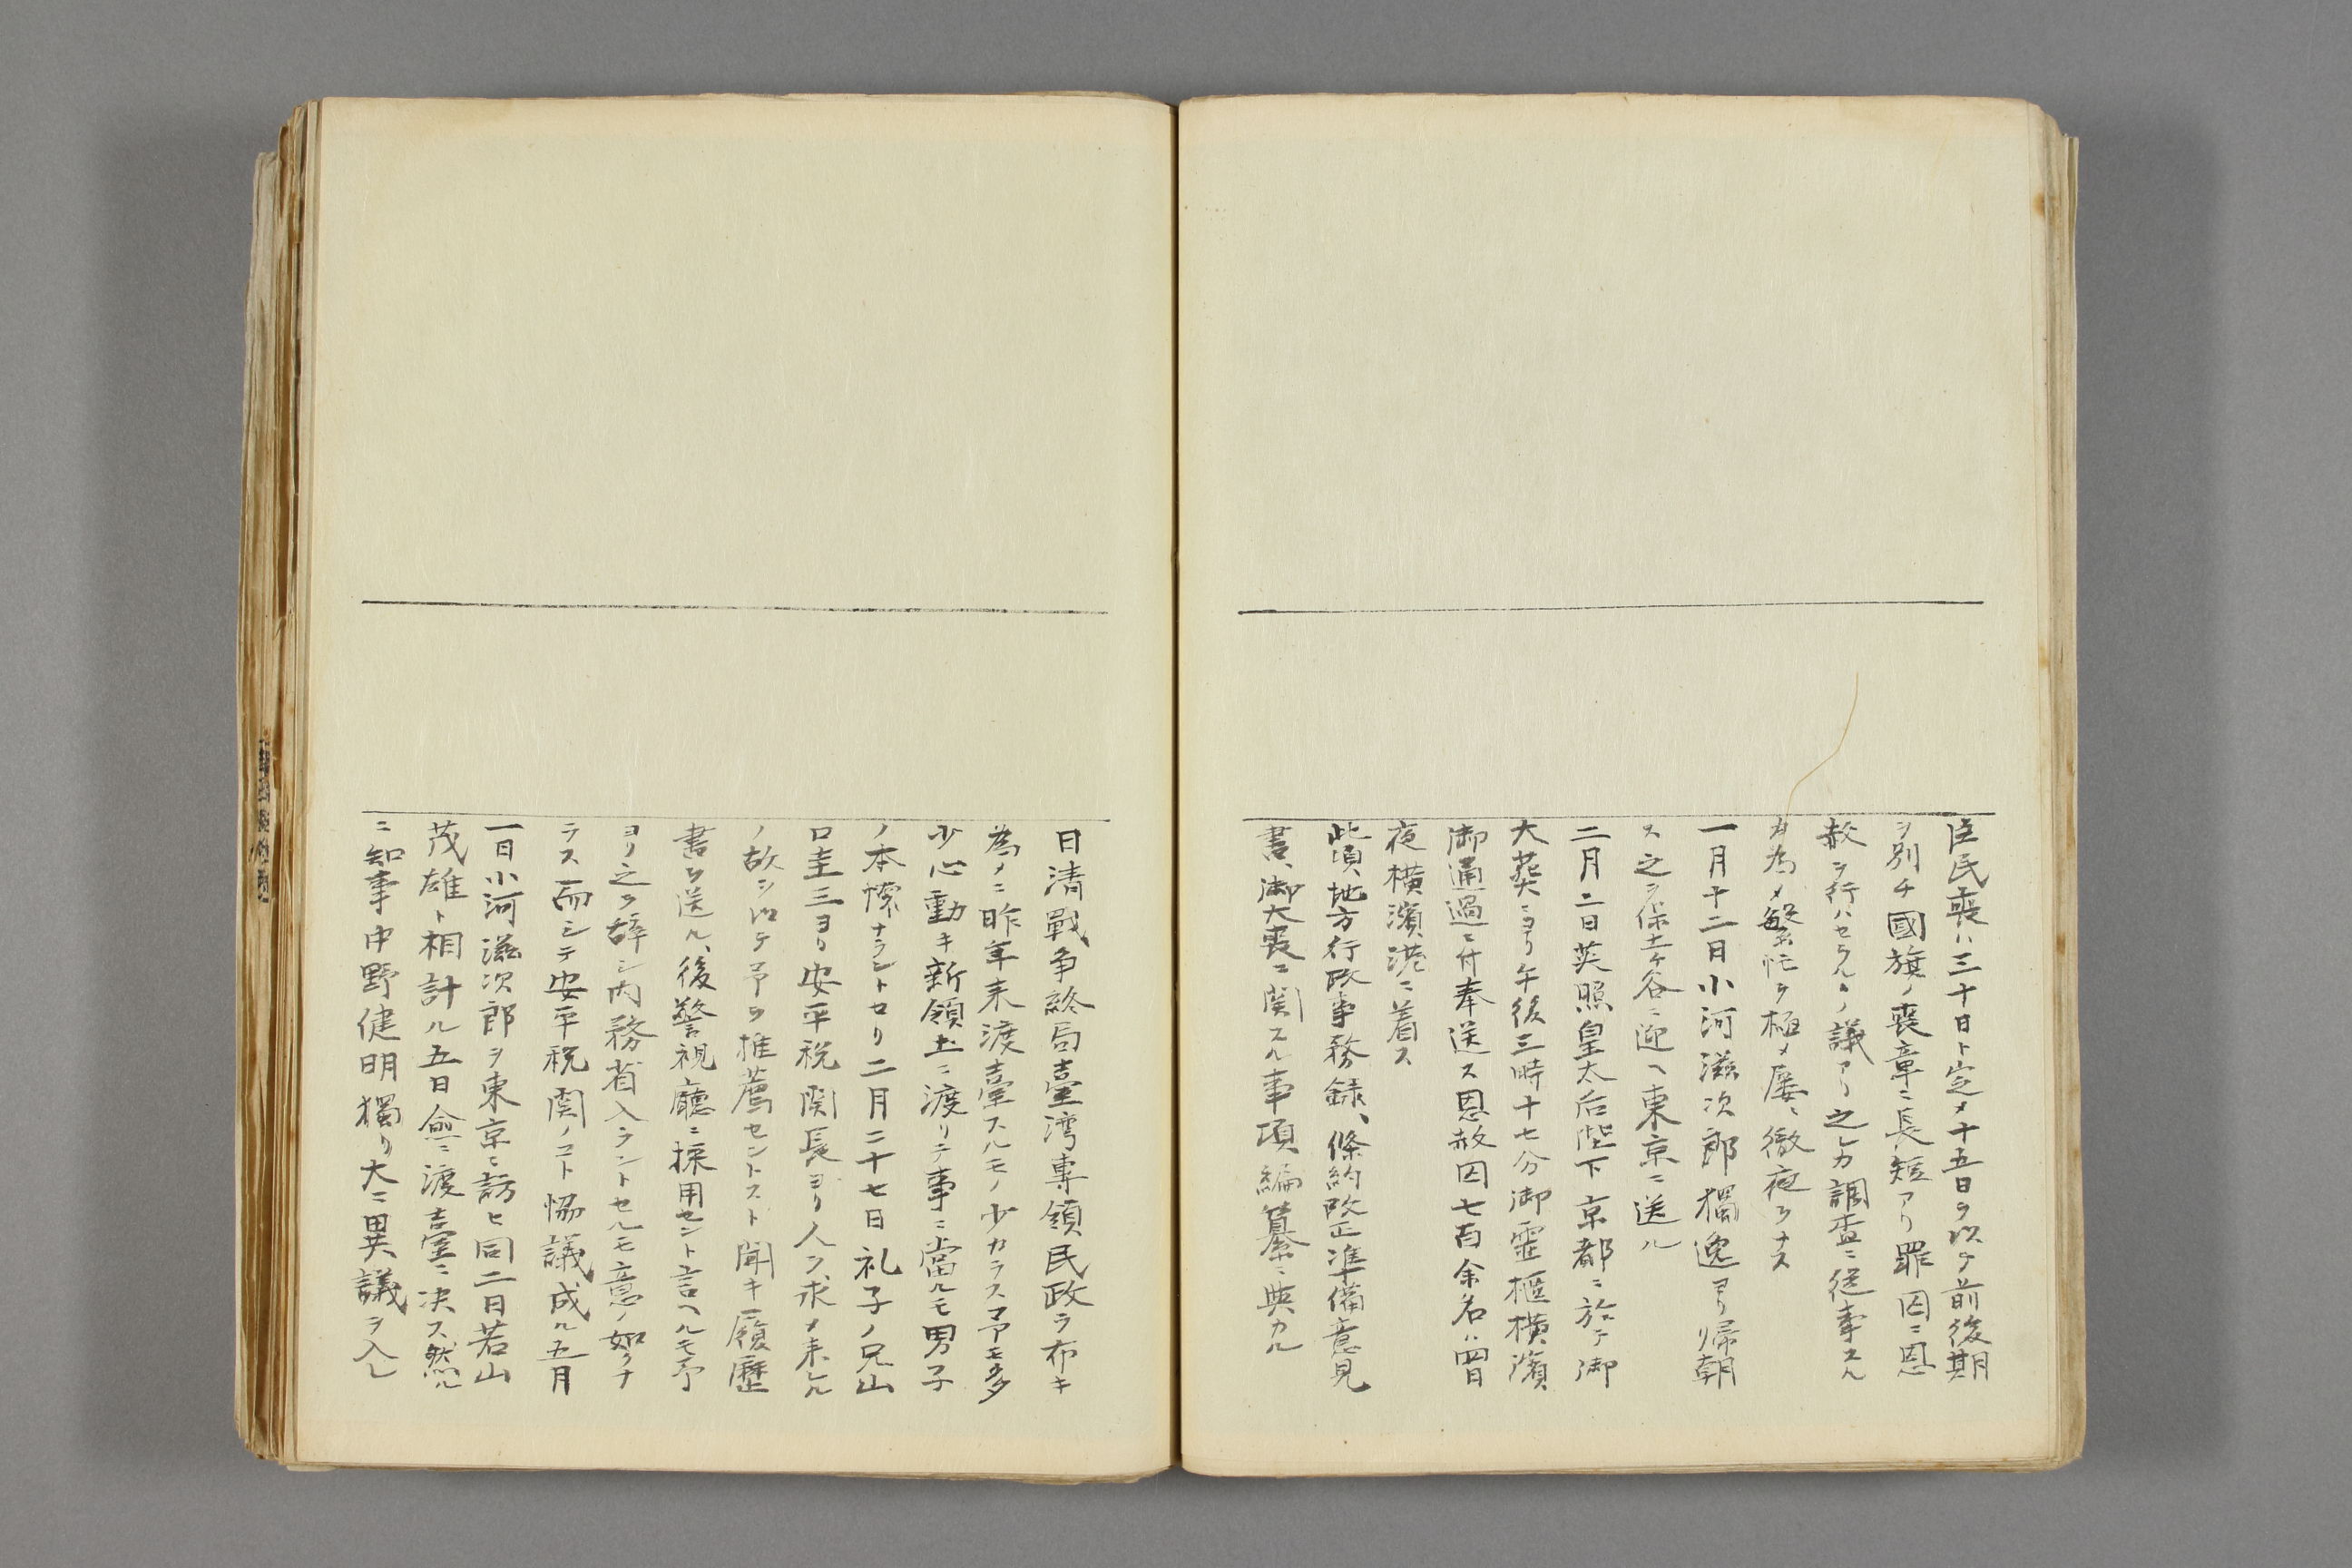 臣民喪ハ三十日ト定メ十五日ヲ以テ前後期
ヲ別チ國旗ノ喪章ニ長短アリ罪囚ニ恩
赦ヲ行ハセラルヽノ議アリ之レカ調査ニ従事スル
カ為メ繁忙ヲ極メ屡〻徹夜ヲナス
一月十二日小河滋次郎獨逸ヨリ帰朝
ス之ヲ保土ヶ谷ニ迎ヘ東京ニ送ル
二月二日英照皇太后陛下京都ニ於テ御
大葬ニヨリ午後三時十七分御霊柩横濱
御通過ニ付奉送ス恩赦囚七百余名ハ四日
夜横濱港ニ着ス
此頃、地方行政事務録、條約改正準備意見
書、御大喪ニ関スル事項編纂ニ與カル
日清戰争終局臺湾専領民政ヲ布キ
為メニ昨年来渡臺スルモノ少カラス予モ多
少心動キ新領土ニ渡リテ事ニ當ルモ男子
ノ本懐ナラントセリ二月二十七日礼子ノ兄山
口圭三ヨリ安平税関長ヨリ人ヲ求メ来レル
ノ故ヲ以テ予ヲ推薦セントスト聞キ履歴
書ヲ送ル、後警視廳ニ採用セント言ヘルモ予
ヨリ之ヲ辞シ内務省入ラントセルモ意ノ如クナ
ラス而シテ安平税関ノコト協議成ル五月
一日小河滋次郎ヲ東京ニ訪ヒ同二日若山
茂雄ト相計ル五日愈〻渡臺ニ决ス然ル
ニ知事中野健明獨リ大ニ異議ヲ入レ